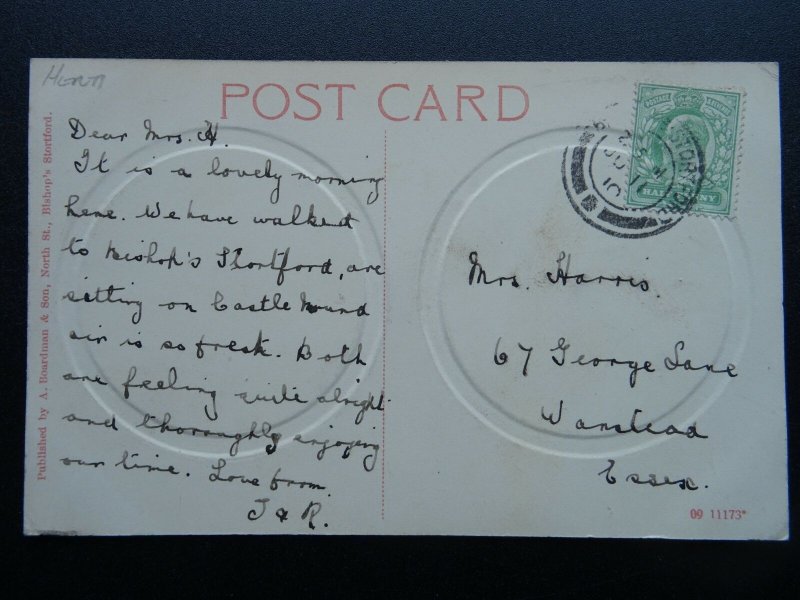 POST CARD
Dear Mrs. H.
It is a lovely morning
here. We have walked
to Bishop's Stortford, are
sitting on Castle Mound
air is so fresh. Both
are feeling quite alright
and thoroughly enjoying
our time. Love from
J & R.
Mrs. Harris.
67 George Lane
Wanstead
Essex.
Published by A. Boardman & Son, North St., Bishop's Stortford.
09 11173*